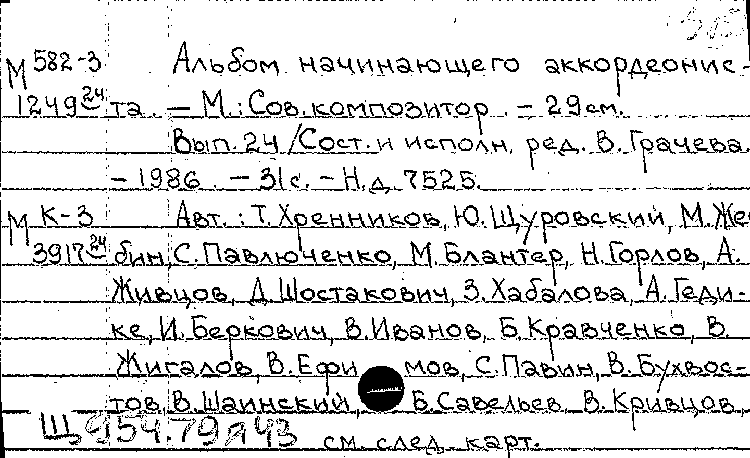 М 582-3 Альбом начинающего аккордеонис-
1249 24 та. — М.: Сов. композитор. — 29 см.
Вып. 24 / Сост. и исполн. ред. В. Грачева.
— 1986. — 31 с. — Н.д. 7525.
М К-3 Авт.: Т. Хренников, Ю. Щуровский, М. Же-
3917 24 бин, С. Павлюченко, М. Блантер, Н. Горлов, А.
Живцов, Д. Шостакович, З. Хабалова, А. Геди-
ке, И. Беркович, В. Иванов, Б. Кравченко, В.
Жигалов, В. Ефимов, С. Павин, В. Бухвос-
тов, В. Шаинский, Б. Савельев, В. Кривцов,
Щ 954.79 я 43 см. след. карт.